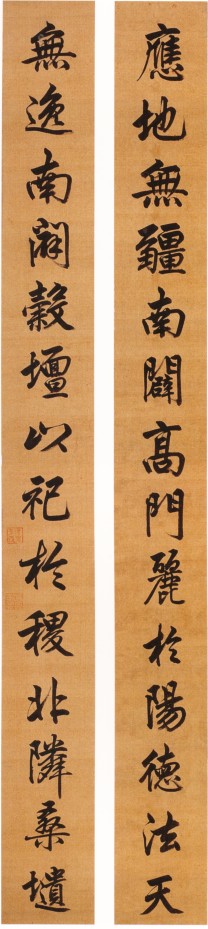 應地無疆南闢高門麗於陽德法天
無逸南穀壇以祀於稷北隣桑壝